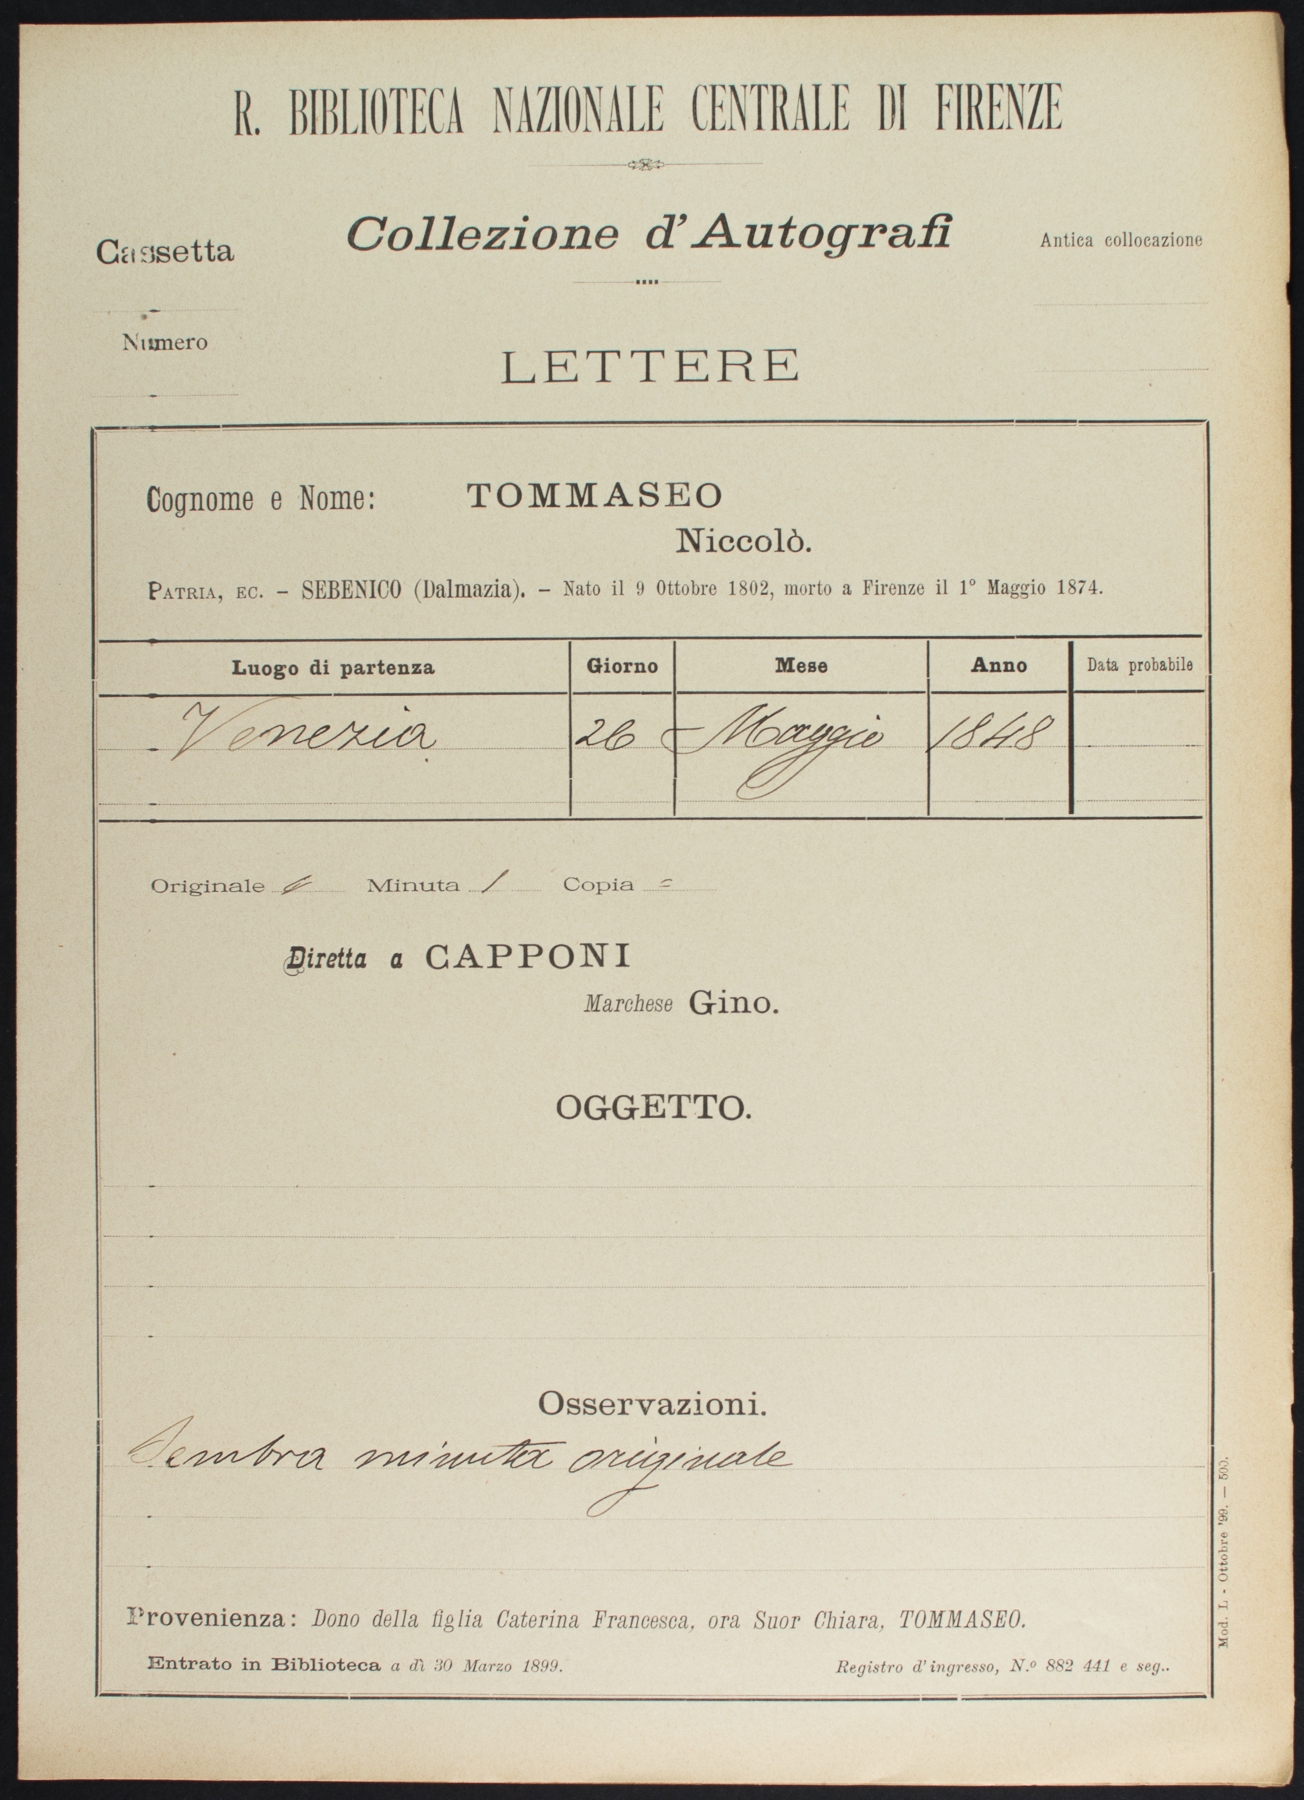 R. BIBLIOTECA NAZIONALE CENTRALE DI FIRENZE
Collezione d'Autografi
Cassetta
Antica collocazione
Numero
LETTERE
Cognome e Nome: TOMMASEO
Niccolò.
PATRIA, EC. – SEBENICO (Dalmazia). – Nato il 9 Ottobre 1802, morto a Firenze il 1° Maggio 1874.
Luogo di partenza Giorno Mese Anno Data probabile
Venezia 26 Maggio 1848
Originale Minuta 1 Copia =
Diretta a CAPPONI
Marchese Gino.
OGGETTO.
Osservazioni.
Sembra minuta originale
Provenienza: Dono della figlia Caterina Francesca, ora Suor Chiara, TOMMASEO.
Entrato in Biblioteca a dì 30 Marzo 1899. Registro d'ingresso, N.º 882 441 e seg..
Mod. L - Ottobre '99. — 500.